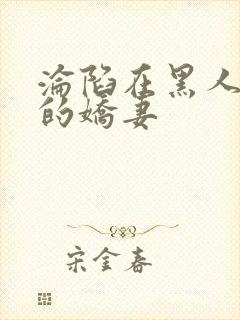 淪陷在黑人
的嬌妻
宋金春